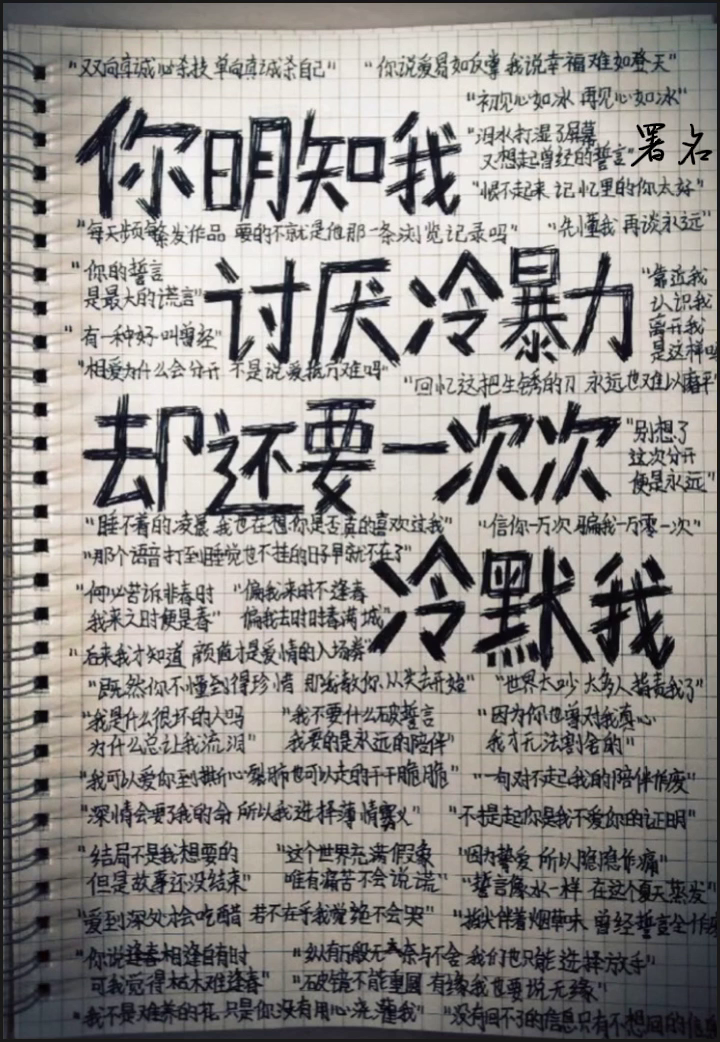 "双向真诚必杀技 单向真诚杀自己" "你说爱易如反掌 我说幸福难如登天"
"初见心如冰 再见心如冰"
你明知我
"泪水打湿了屏幕
又想起曾经的誓言"
署名
"恨不起来 记忆里的你太好"
"每天频繁发作品 要的不就是他那一条浏览记录吗" "先懂我 再谈永远"
"你的誓言
是最大的谎言"
讨厌冷暴力
"靠近我
认识我
离开我
是这样吗
"有一种好叫曾经"
"相爱为什么会分开 不是说爱抵万难吗"
"回忆这把生锈的刀 永远也难以磨平"
却还要一次次
"别想了
这次分开
便是永远"
"睡不着的凌晨 我也在想你是否真的喜欢过我" "信你一万次 骗我一万零一次"
"那个语音打到睡觉也不挂的日子早就不在了"
冷默我
"何必苦诉非春时
我来之时便是春"
"偏我来时不逢春
偏我去时时春满城"
"后来我才知道 颜值才是爱情的入场券"
"既然你不懂到得珍惜 那我教你从失去开始" "世界太吵 太多人指责我了"
"我是什么很坏的人吗
为什么总让我流泪"
"我不要什么破誓言
我要的是永远的陪伴"
"因为你也曾对我真心
我才无法割舍的"
"我可以爱你到撕心裂肺也可以走的干干脆脆" "一句对不起我的陪伴作废"
"深情会要了我的命 所以我选择薄情寡义" "不提起你是我不爱你的证明"
"结局不是我想要的
但是故事还没结束"
"这个世界充满假象
唯有痛苦不会说谎"
"因为挚爱 所以隐隐作痛"
"誓言像水一样 在这个夏天蒸发"
"爱到深处才会吃醋 若不在乎我觉绝不会哭" "指尖伴着烟草味 曾经誓言全作废
"你说逢春相逢自有时
可我觉得枯木难逢春"
"纵有万般无奈与不舍 我们也只能选择放手"
"破镜不能重圆 有缘我也要说无缘"
"我不是难养的花 只是你没有用心浇灌我" "没有回不了的信息只有不想回的信息